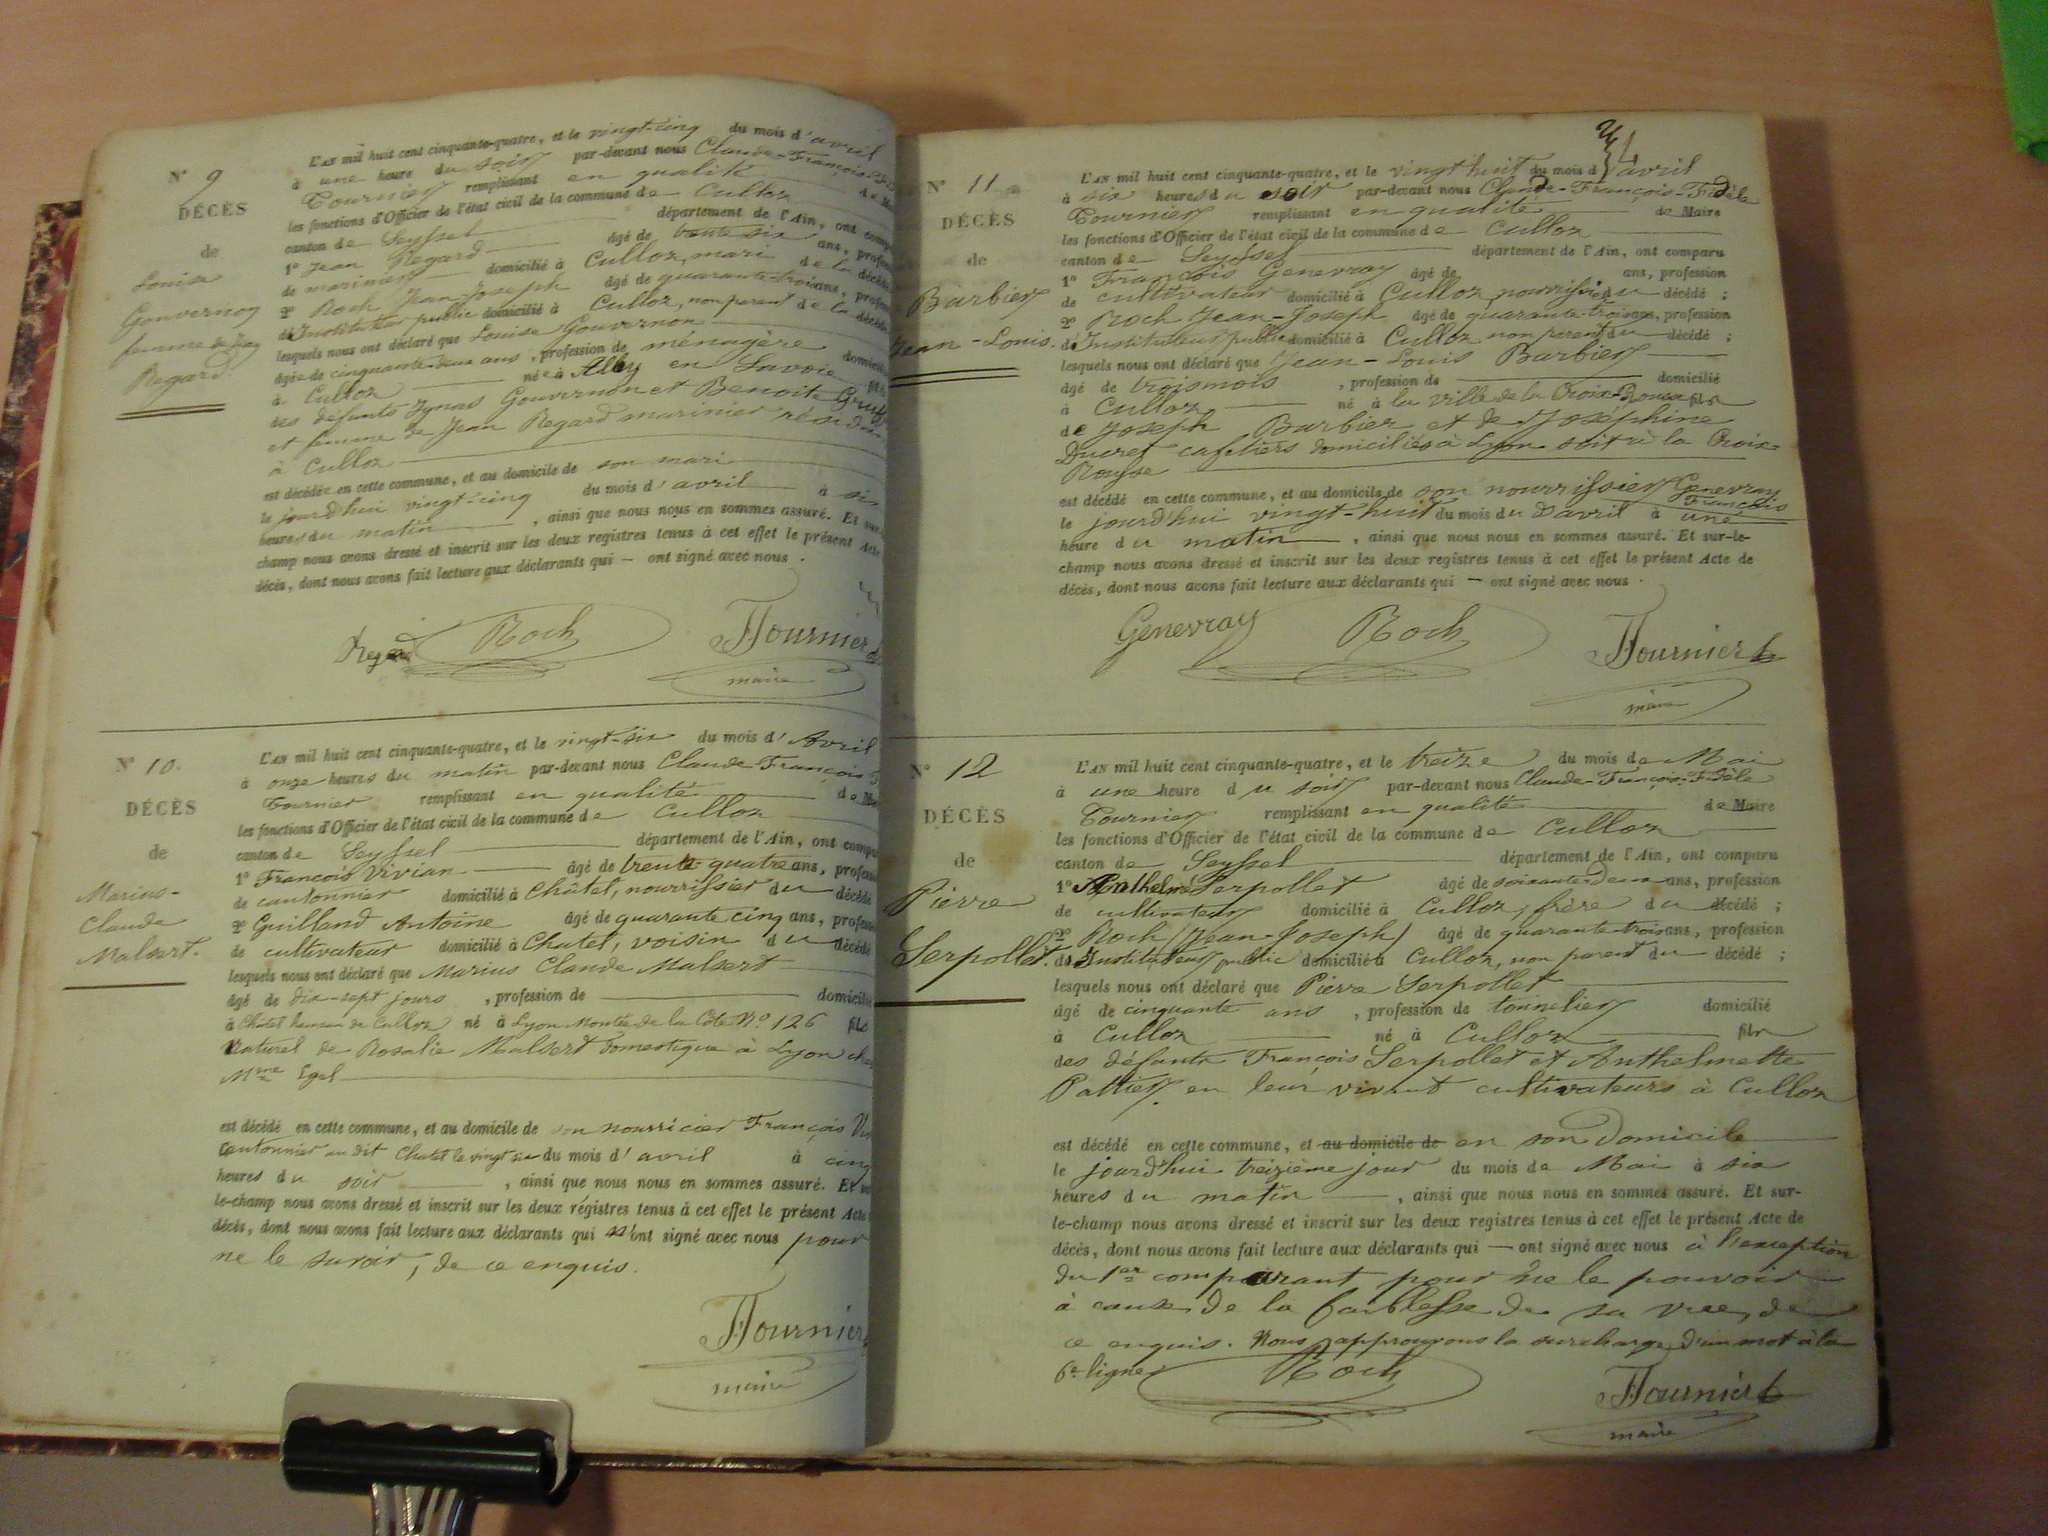 N° 9
DÉCÈS
de
Louise
Gouvernon
femme de Jean
Regard.
L'AN mil huit cent cinquante-quatre, et le vingt-cinq du mois d'avril
à une heure du soir par-devant nous Claude-François
Tournier remplissant en qualité de
les fonctions d'Officier de l'état civil de la commune de Culloz
canton de Seyssel département de l'Ain, ont
1° Jean Regard âgé de ans,
de marinier domicilié à Culloz, mari de la
2° Roch Jean-Joseph âgé de quarante-trois ans,
d'Instituteur public domicilié à Culloz, non parent de la
lesquels nous ont déclaré que Louise Gouvernon
âgée de cinquante-deux ans, profession de ménagère
à Culloz née à Alby en Savoie
des défunts Gouvernon et Benoite
et femme de Jean Regard marinier
à Culloz
est décédée en cette commune, et au domicile de son mari
le jourd'hui vingt-cinq du mois d'avril à six
heures du matin, ainsi que nous nous en sommes assuré. Et
champ nous avons dressé et inscrit sur les deux registres tenus à cet effet le présent Acte
décès, dont nous avons fait lecture aux déclarants qui — ont signé avec nous.
Regard Roch Tournier
maire
N° 10.
DÉCÈS
de
Marius-
Claude
Malsert.
L'AN mil huit cent cinquante-quatre, et le vingt-six du mois d'Avril
à onze heures du matin par-devant nous Claude François
Tournier remplissant en qualité de
les fonctions d'Officier de l'état civil de la commune de Culloz
canton de Seyssel département de l'Ain, ont
1° François Vivian âgé de trente quatre ans,
de cantonnier domicilié à Châtel, nourrissier du décédé
2° Guilland Antoine âgé de quarante cinq ans,
de cultivateur domicilié à Chatel, voisin du décédé
lesquels nous ont déclaré que Marius Claude Malsert
âgé de dix-sept jours, profession de domicilié
à Châtel hameau de Culloz né à Lyon Montée de la Côte N° 126 fils
naturel de Rosalie Malsert domestique à Lyon
Mme Egel
est décédé en cette commune, et au domicile de son nourricier François
cantonnier au dit Chatel le vingt du mois d'avril à cinq
heures du soir, ainsi que nous nous en sommes assuré. Et
le-champ nous avons dressé et inscrit sur les deux régistres tenus à cet effet le présent Acte
décès, dont nous avons fait lecture aux déclarants qui n'ont signé avec nous pour
ne le savoir, de ce enquis.
Tournier
maire
N° 11
DÉCÈS
de
Barbier
Jean-Louis.
L'AN mil huit cent cinquante-quatre, et le vingt huit du mois d'avril
à six heures du soir par-devant nous Claude-François-Fidèle
Tournier remplissant en qualité de Maire
les fonctions d'Officier de l'état civil de la commune de Culloz
canton de Seyssel département de l'Ain, ont comparu
1° François Genevray âgé de ans, profession
de cultivateur domicilié à Culloz, nourrissier du décédé ;
2° Roch Jean-Joseph âgé de quarante-trois ans, profession
d'Instituteur public domicilié à Culloz non parent du décédé ;
lesquels nous ont déclaré que Jean-Louis Barbier
âgé de trois mois, profession de domicilié
à Culloz né à la ville de la Croix-Rousse fils
de Joseph Barbier et de Joséphine
Ducret cafetiers domiciliés à Lyon soit à la Croix-
Rousse
est décédé en cette commune, et au domicile de son nourrissier Genevray
François
le jourd'hui vingt-huit du mois du d'avril à une
heure du matin, ainsi que nous nous en sommes assuré. Et sur-le-
champ nous avons dressé et inscrit sur les deux registres tenus à cet effet le présent Acte de
décès, dont nous avons fait lecture aux déclarants qui — ont signé avec nous.
Genevray Roch Tournier
maire
N° 12
DÉCÈS
de
Pierre
Serpollet.
L'AN mil huit cent cinquante-quatre, et le treize du mois de Mai
à une heure du soir par-devant nous Claude-François-Fidèle
Tournier remplissant en qualité de Maire
les fonctions d'Officier de l'état civil de la commune de Culloz
canton de Seyssel département de l'Ain, ont comparu
1° Anthelme Serpollet âgé de soixante-deux ans, profession
de cultivateur domicilié à Culloz, frère du décédé ;
2° Roch (Jean-Joseph) âgé de quarante-trois ans, profession
d'Instituteur public domicilié à Culloz, non parent du décédé ;
lesquels nous ont déclaré que Pierre Serpollet
âgé de cinquante ans, profession de tonnelier domicilié
à Culloz né à Culloz fils
des défunts François Serpollet et Anthelmette
Pattier en leur vivant cultivateurs à Culloz
est décédé en cette commune, et au domicile de en son domicile
le jourd'hui treizième jour du mois de Mai à six
heures du matin, ainsi que nous nous en sommes assuré. Et sur-
le-champ nous avons dressé et inscrit sur les deux registres tenus à cet effet le présent Acte de
décès, dont nous avons fait lecture aux déclarants qui — ont signé avec nous à l'exception
du 1er comparant pour ne le pouvoir
à cause de la faiblesse de sa vue, de
ce enquis. Nous approuvons la surcharge d'un mot à la
6e ligne
Roch Tournier
maire